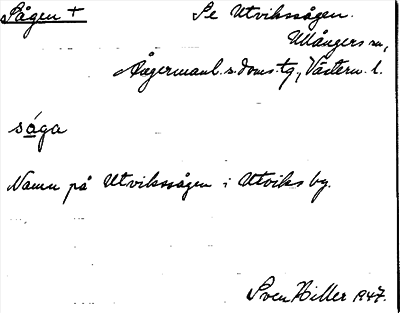 Sågen + Se Utvikssågen.
Ullångers sn,
Ångermanl. s. doms. tg., Västern. l.
såga
Namn på Utvikssågen i Utviks by.
Sven Hiller 1947.